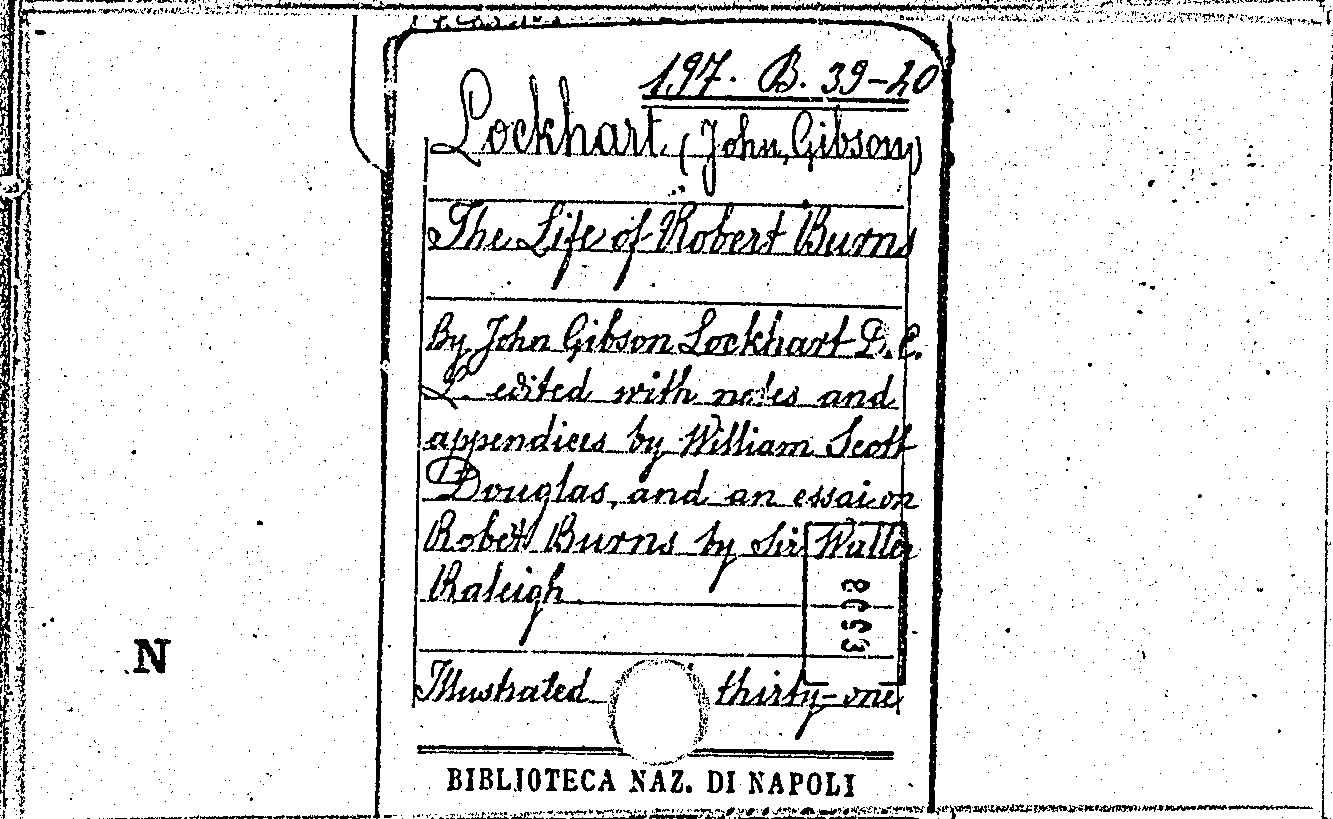 197. B. 39-20
Lockhart (John, Gibson)
The Life of Robert Burns
By John Gibson Lockhart D. C.
L. edited with notes and
appendices by William Scott
Douglas, and an essai on
Robert Burns by Sir Walter
Raleigh
Illustrated thirty-one
BIBLIOTECA NAZ. DI NAPOLI
N